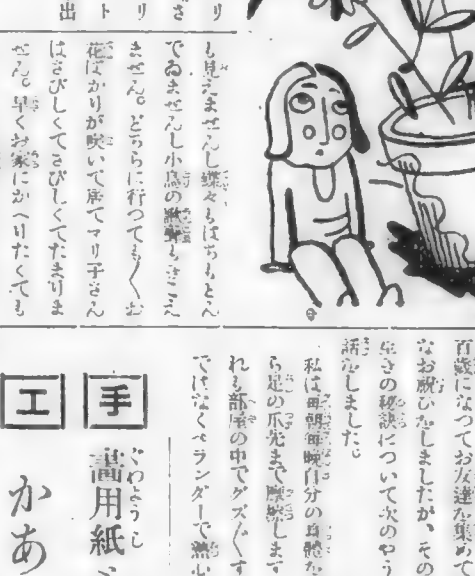 リ
さ
リ
ト
出
も見えませんし蝶々もはちもとん
でゐませんし小鳥の歌聲もきこえ
ません。どちらに行つても〳〵お
花ばかりが咲いて居てマリ子さん
はさびしくてさびしくてたまりま
せん。早くお家にかへりたくても
百歳になつてお友達を集めて
なお祝ひをしましたが、その
生きの秘訣について次のやう
話をしました。
私は毎朝毎晩自分の身體を
ら足の爪先まで摩擦します
れも部屋の中でグズ〳〵す
ではなくベランダーで熱心
手
工
ぐわようし
畵用紙
かあ